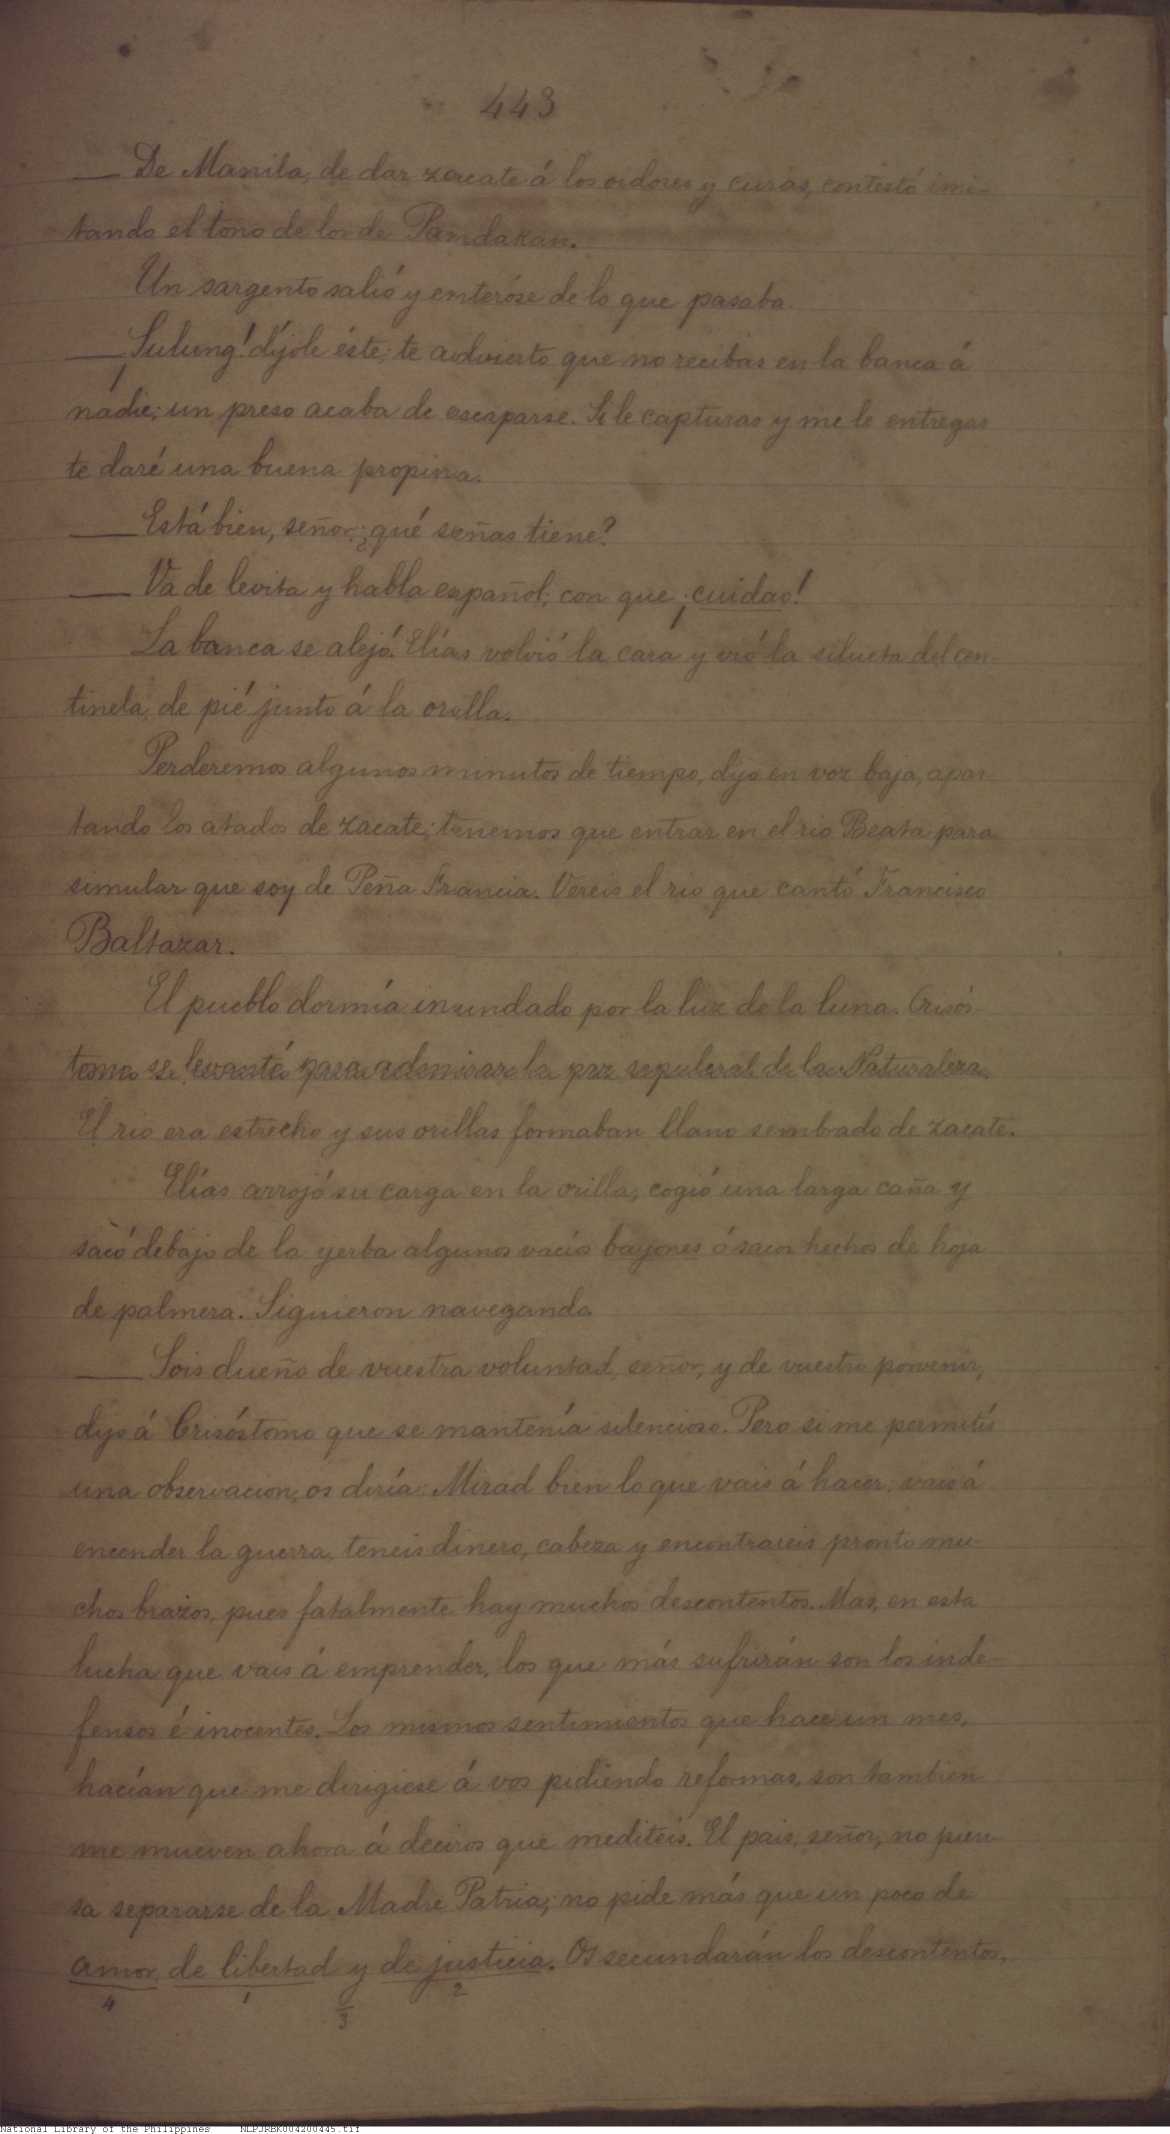 443
— De Manila, de dar zacate á los oidores y curas, contestó imi-
tando el tono de los de Pandakan.
Un sargento salió y enteróse de lo que pasaba.
— ¡Sulung! díjole éste; te advierto que no recibas en la banca á
nádie; un preso acaba de escaparse. Si le capturas y me le entregas
te daré una buena propina.
— Está bien, señor; ¿qué señas tiene?
— Va de levita y habla español; con que ¡cuidao!
La banca se alejó. Elías volvió la cara y vió la silueta del cen-
tinela, de pié junto á la orilla.
Perderemos algunos minutos de tiempo, dijo en voz baja, apar-
tando los atados de zacate; tenemos que entrar en el rio Beata para
simular que soy de Peña Francia. Vereis el rio que cantó Francisco
Baltazar.
El pueblo dormía inundado por la luz de la luna. Crisós-
tomo se levantó para admirar la paz sepulcral de la Naturaleza.
El rio era estrecho y sus orillas formaban llano sembrado de zacate.
Elías arrojó su carga en la orilla, cogió una larga caña y
sacó debajo de la yerba algunos vacíos bayones ó sacos hechos de hoja
de palmera. Siguieron navegando.
— Sois dueño de vuestra voluntad, señor, y de vuestro porvenir,
dijo á Crisóstomo que se mantenía silencioso. Pero si me permitís
una observacion, os diría: Mirad bien lo que vais á hacer; vais á
encender la guerra, teneis dinero, cabeza y encontrareis pronto mu-
chos brazos, pues fatalmente hay muchos descontentos. Mas, en esta
lucha que vais á emprender, los que más sufrirán son los inde-
fensos é inocentes. Los mismos sentimientos que hace un mes,
hacían que me dirigiese á vos pidiendo reformas, son tambien
me mueven ahora á deciros que mediteis. El pais, señor, no pien-
sa separarse de la Madre Patria; no pide más que un poco de
amor, de libertad y de justicia. Os secundarán los descontentos,
4 1 3 2
National Library of the Philippines NLPJRBK004200445.tif